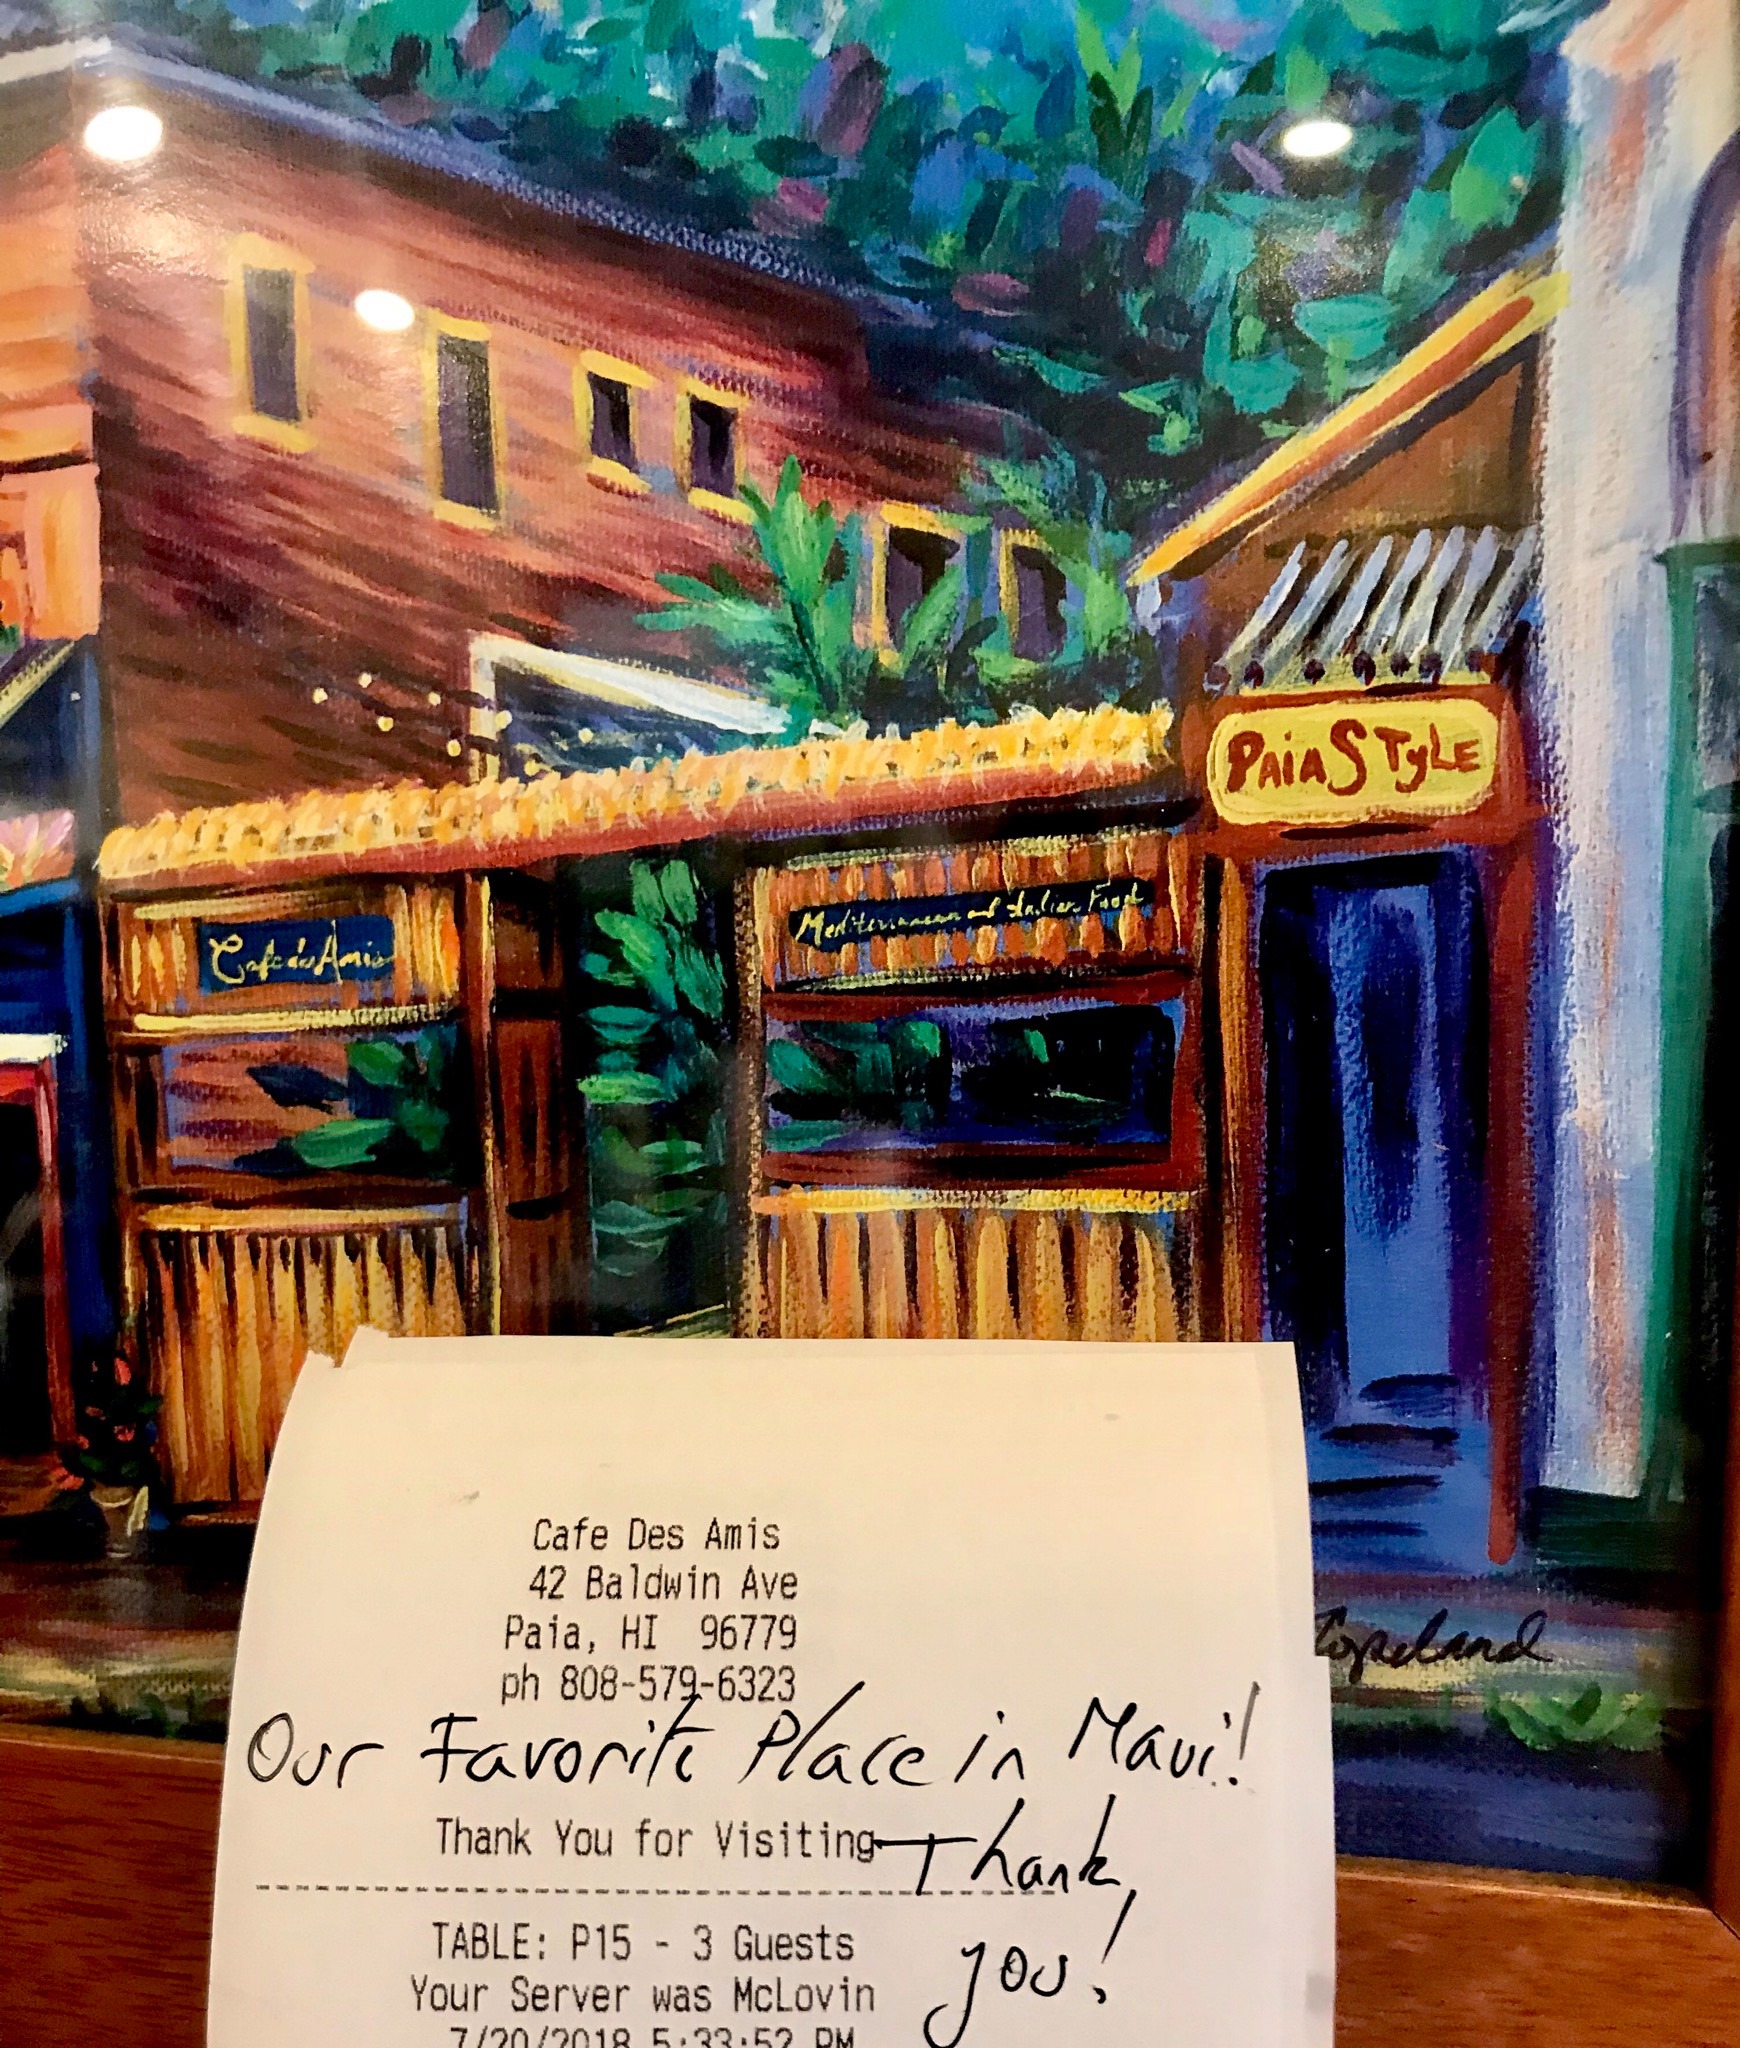 Paia Style
Cafe des Amis
Mediterranean and Italian Food
Copeland
Cafe Des Amis
42 Baldwin Ave
Paia, HI 96779
ph 808-579-6323
Our Favorite Place in Maui!
Thank You for Visiting
Thank
you!
TABLE: P15 - 3 Guests
Your Server was McLovin
7/20/2018 5:33:52 PM